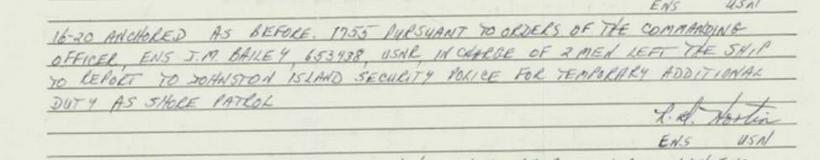 ENS USN
16-20 ANCHORED AS BEFORE. 1755 PURSUANT TO ORDERS OF THE COMMANDING
OFFICER, ENS J.M. BAILEY, 653938, USNR, IN CHARGE OF 2 MEN LEFT THE SHIP
TO REPORT TO JOHNSTON ISLAND SECURITY POLICE FOR TEMPORARY ADDITIONAL
DUTY AS SHORE PATROL
ENS USN